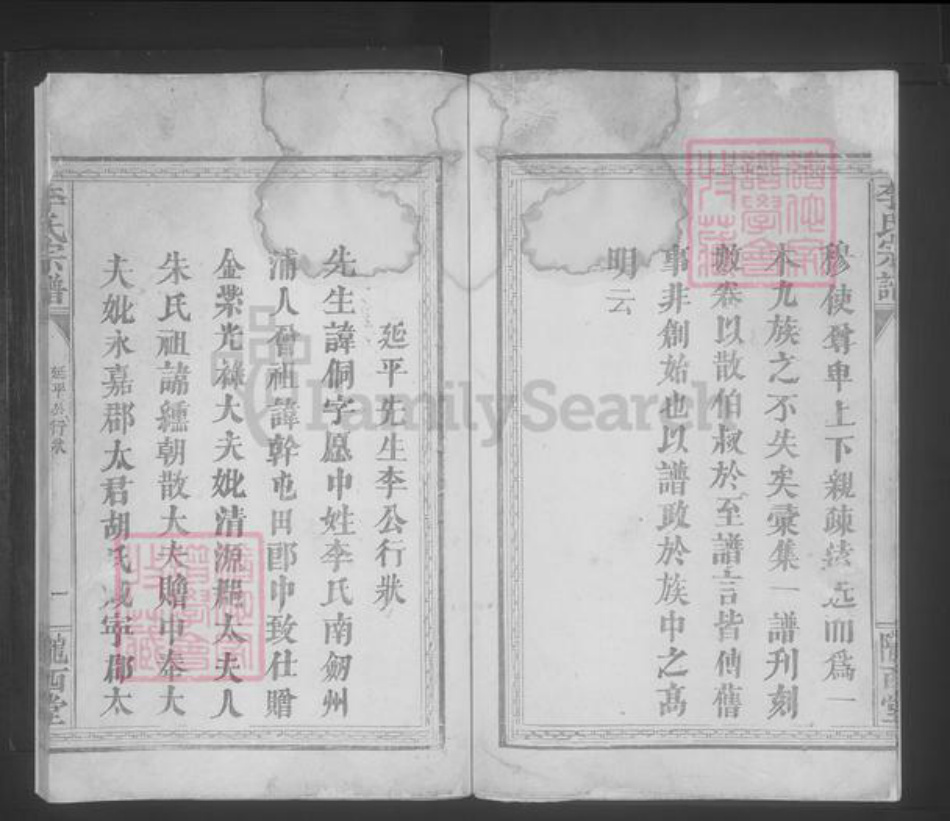 李氏宗譜
隴西堂
穆使尊卑上下親疎遠近而爲一
本九族之不失矣彙集一譜刋刻
數卷以散伯叔於至譜言皆傅舊
事非創始也以譜政於族中之髙
明云
延平先生李公行狀
先生諱侗字愿中姓李氏南劒州
浦人曾祖諱幹屯田郎中致仕贈
金紫光祿大夫妣清源郡太夫人
朱氏祖諱纁朝散大夫贈中奉大
夫妣永嘉郡太君胡氏咸寧郡太
李氏宗譜
延平公行狀
一
隴西堂
FamilySearch